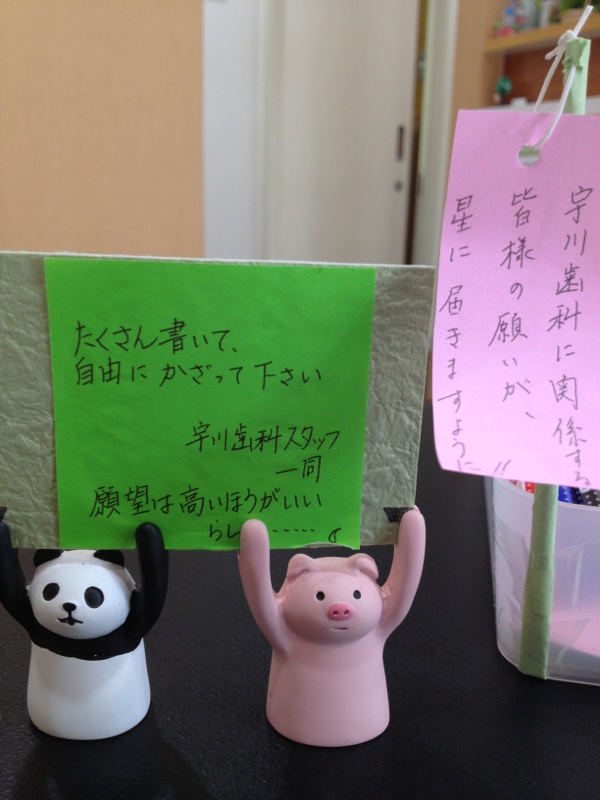 たくさん書いて、
自由にかざって下さい
宇川歯科スタッフ
一同
願望は高いほうがいい
らしい……
宇川歯科に関係する
皆様の願いが、
星に届きますように!!